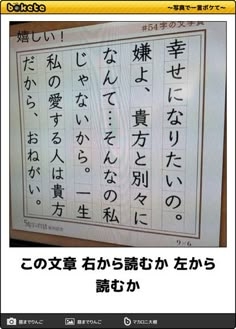 bokete
〜写真で一言ボケて〜
#54字の文学賞
嬉しい！
幸せになりたいの。
嫌よ、貴方と別々に
なんて…そんなの私
じゃないから。一生
私の愛する人は貴方
だから、おねがい。
9×6
この文章 右から読むか 左から
読むか
猫までりんご
猫までりんご
マカロニ大樹